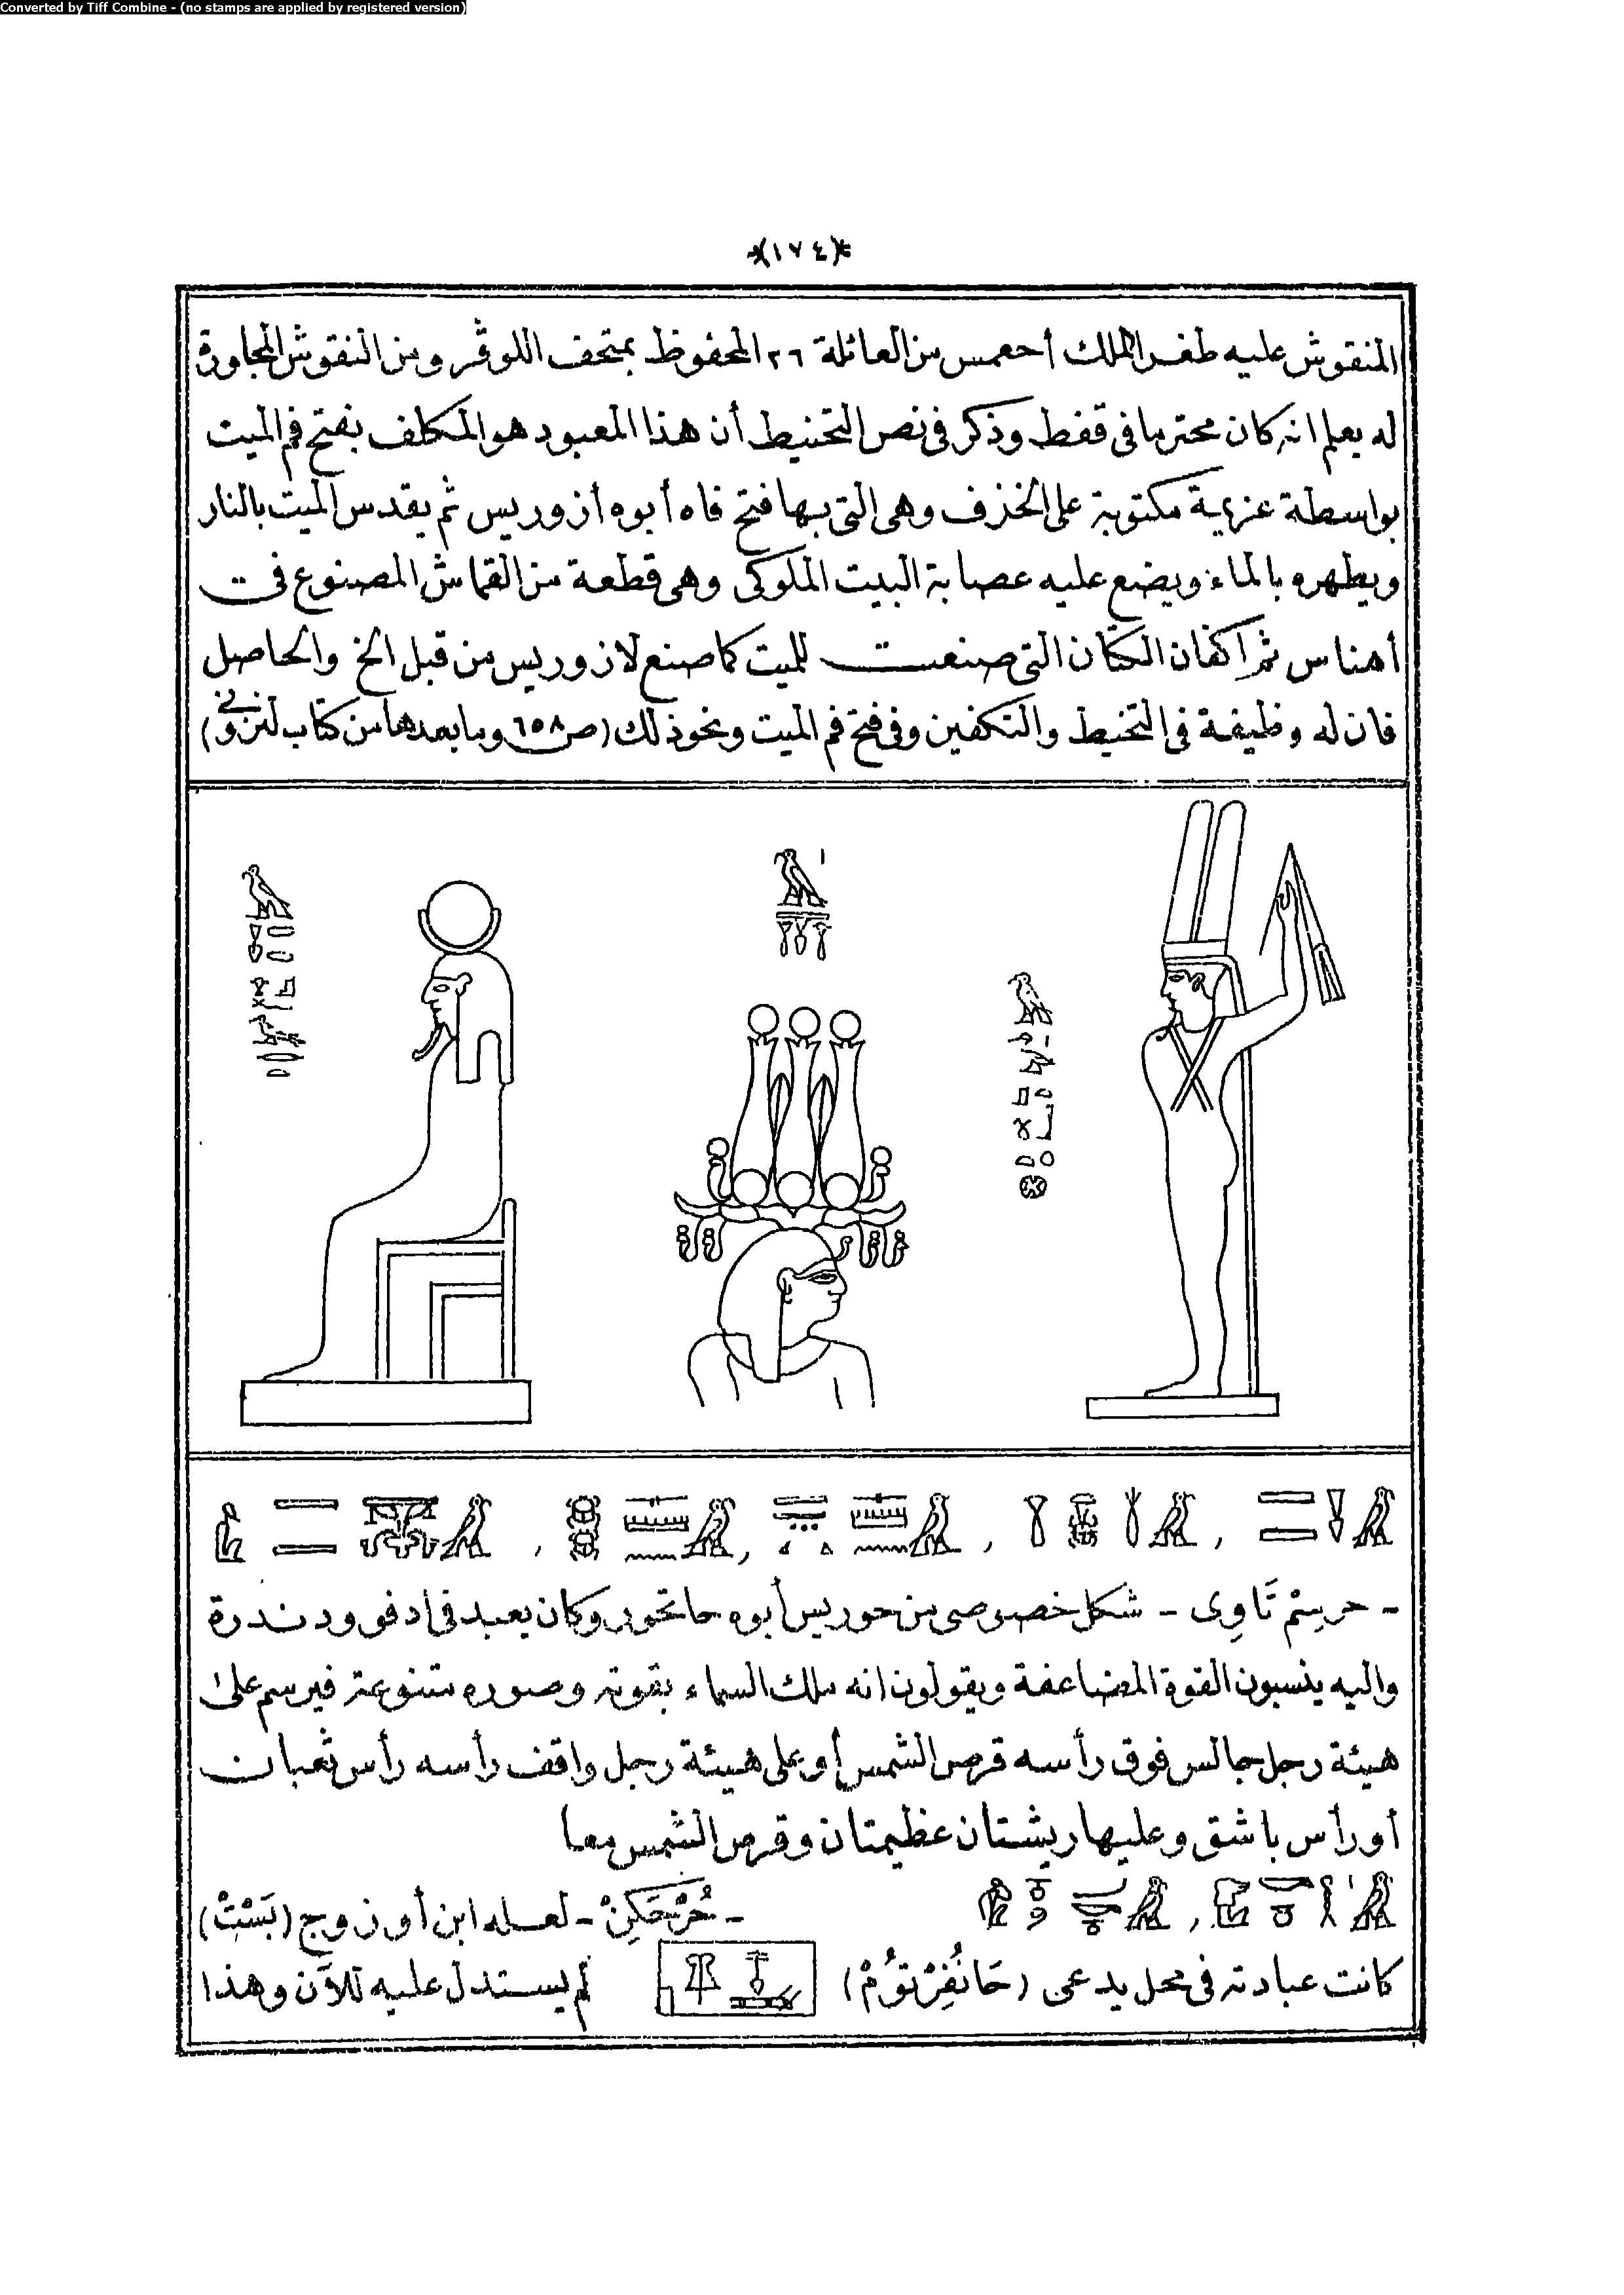 Converted by Tiff Combine - (no stamps are applied by registered version)
*(١٧٤)*
المنقوش عليه طغر الملك أحعمس من العائلة ٢٦ المحفوظ بمتحف اللوڤر ومن النقوش المجاورة
له يعلم انه كان محترما فى قفط وذكر فى نص التحنيط أن هذا المعبود هو المكلف بفتح فم الميت
بواسطة عزيمة مكتوبة على الخذف وهى التى بها فتح فاه أبوه أزوريس ثم يقدس الميت بالنار
ويطهره بالماء ويضع عليه عصابة البيت الملوكى وهى قطعة من القماش المصنوع فى
أهناس ثم اكفان الكتان التى صنعت للميت كما صنع لازوريس من قبل الخ والحاصل
فان له وظيفة فى التحنيط والتكفين وفى فتح فم الميت ونحو ذلك (ص ٦٥٨ وما بعدها من كتاب لنزونى)
- حر سِمْ تَاوِى - شكل خصوصى من حوريس أبوه حاتحور وكان يعبد فى أدفو ودندرة
واليه ينسبون القوة المضاعفة ويقولون انه ملك السماء بقوته وصوره متنوعة فيرسم على
هيئة رجل جالس فوق رأسه قرص الشمس أو على هيئة رجل واقف رأسه رأس ثعبان
أو رأس باشق وعليها ريشتان عظيمتان وقرص الشمس معا
- حُرْشَحَكِنْ - لعله ابن أو زوج (بَسْتِتْ)
كانت عبادته فى محل يدعى (حَانُفِرْتوُمْ) لم يستدل عليه للآن وهذا